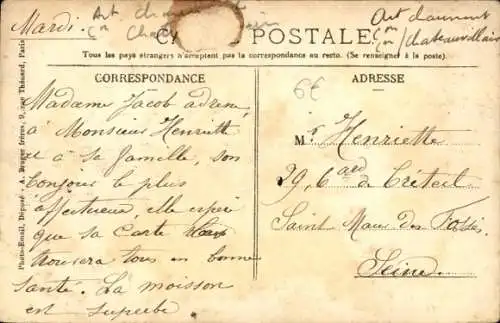 Mardi.
Art
Cⁿ
Art
Cⁿ
/Chateauvillain
POSTALE
Tous les pays étrangers n'acceptent pas la correspondance au recto. (Se renseigner à la poste).
CORRESPONDANCE
Madame Jacob adresse
à Monsieur Henriette
et à sa famille, son
bonjour le plus
affectueux, elle espère
que sa Carte vous
trouvera tous en bonne
santé. La moisson
est superbe
ADRESSE
6€
Mr Henriette
29, Bard de Créteil
Saint Maur des Fossés.
Seine
Photo-Email, Déposé - A. Breger frères, 9, rue Thénard, Paris